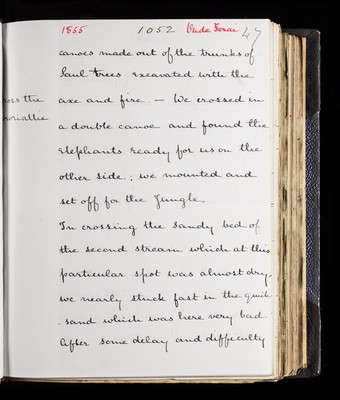 1855 1052 Oude Terai 47
canoes made out of the trunks of
Saul trees excavated with the
axe and fire. — We crossed in
a double canoe and found the
Elephants ready for us on the
other side; we mounted and
set off for the Jungle.
In crossing the sandy bed of
the second stream which at this
particular spot was almost dry,
we nearly stuck fast in the quick
-sand which was here very bad.
After some delay and difficulty
ross the